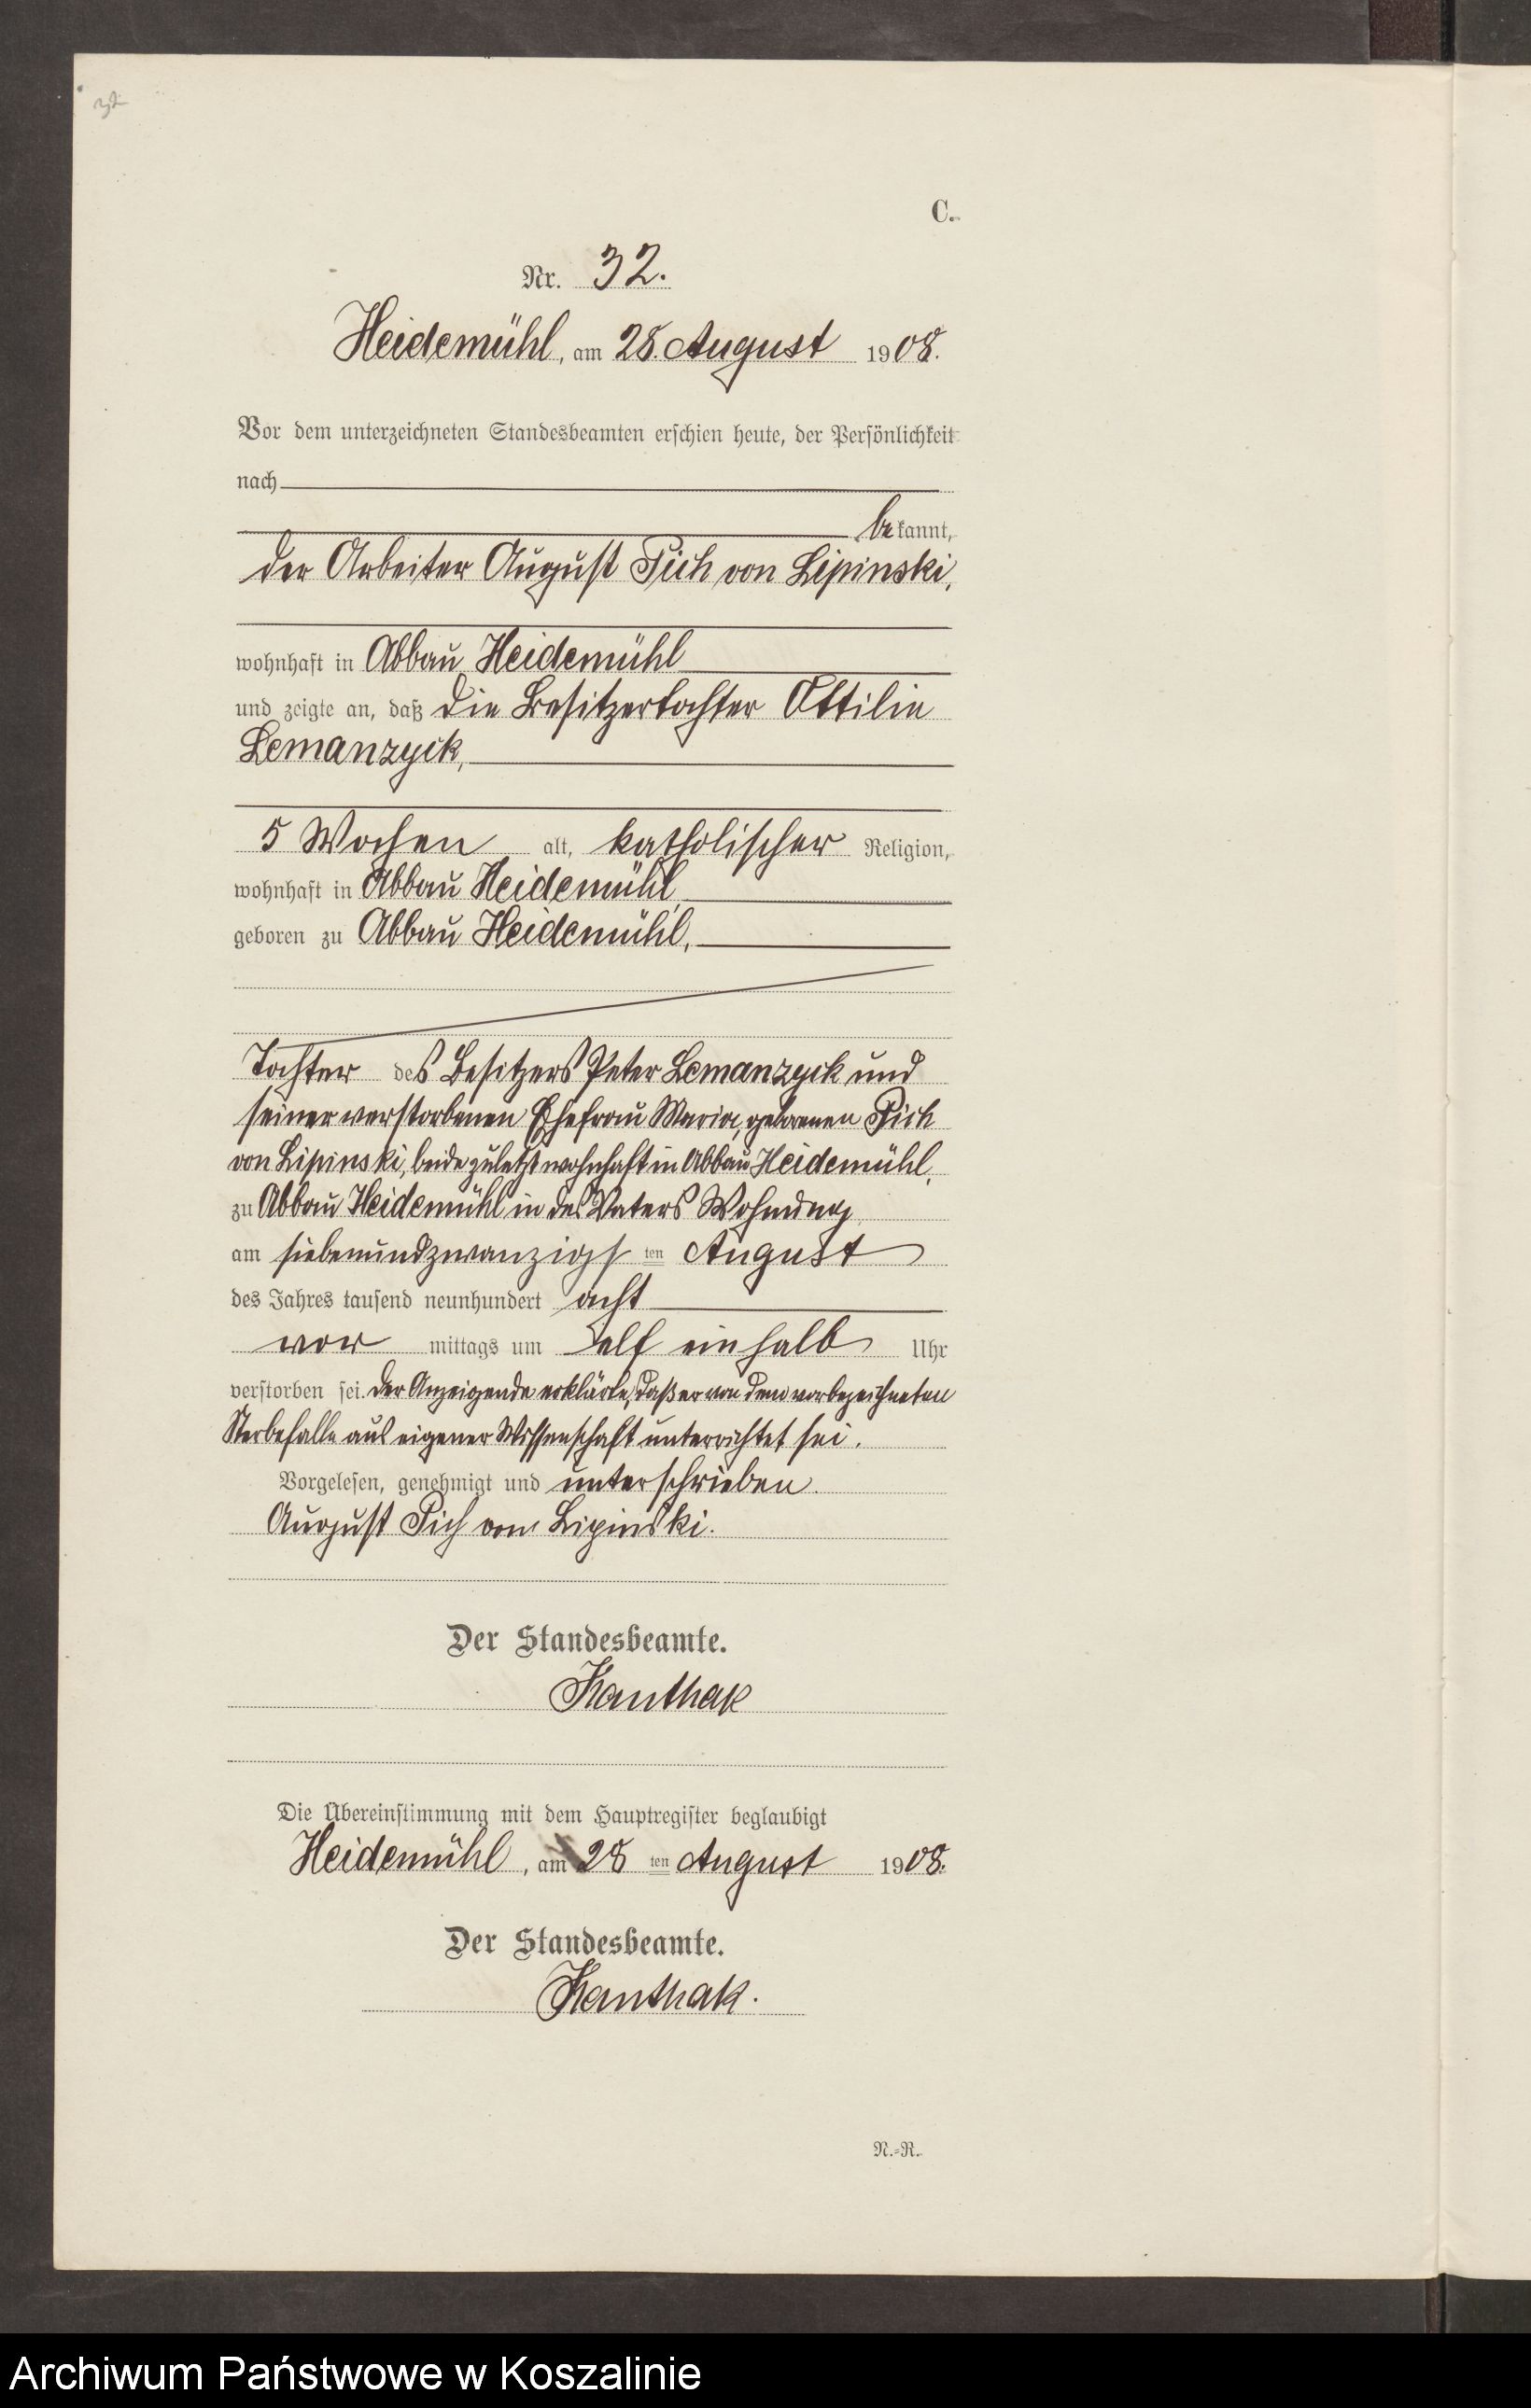 32
C.
Nr. 32.
Heidemühl, am 28. August 1908.
Vor dem unterzeichneten Standesbeamten erschien heute, der Persönlichkeit
nach
bekannt,
der Arbeiter August Pich von Lipinski,
wohnhaft in Abbau Heidemühl
und zeigte an, daß die Besitzertochter Ottilie
Lemanzyck,
5 Wochen alt, katholischer Religion,
wohnhaft in Abbau Heidemühl,
geboren zu Abbau Heidemühl,
Tochter des Besitzers Peter Lemanzyck und
seiner verstorbenen Ehefrau Maria, geborenen Pich
von Lipinski, beide zuletzt wohnhaft in Abbau Heidemühl,
zu Abbau Heidemühl in des Vaters Wohnung
am siebenundzwanzigsten August
des Jahres tausend neunhundert acht
vor mittags um elf einhalb Uhr
verstorben sei. Der Anzeigende erklärte, daß er von dem vorbezeichneten
Sterbefalle aus eigener Wissenschaft unterrichtet sei.
Vorgelesen, genehmigt und unterschrieben.
August Pich von Lipinski.
Der Standesbeamte.
Kanthak
Die Übereinstimmung mit dem Hauptregister beglaubigt
Heidemühl, am 28 ten August 1908.
Der Standesbeamte.
Kanthak.
N.=R.
Archiwum Państwowe w Koszalinie